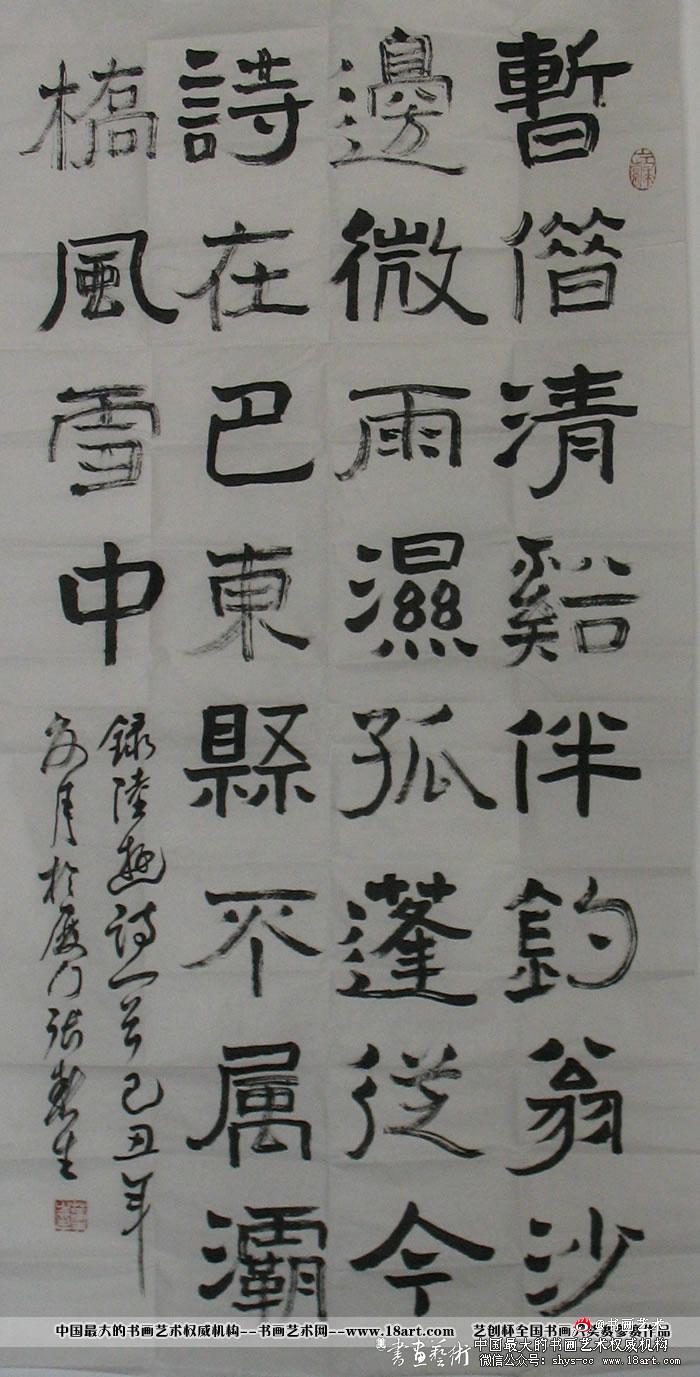 暫偕清谿伴釣翁沙
邊微雨濕孤蓬從今
詩在巴東縣不属灞
橋風雪中
錄陸遊詩一首己丑年
月於厦门张生
中国最大的书画艺术权威机构--书画艺术网--www.18art.com 艺创杯全国书画大奖赛参赛作品
@书画艺术
書画藝術
中国最大的书画艺术权威机构
微信公众号: shys-cc www.18art.com